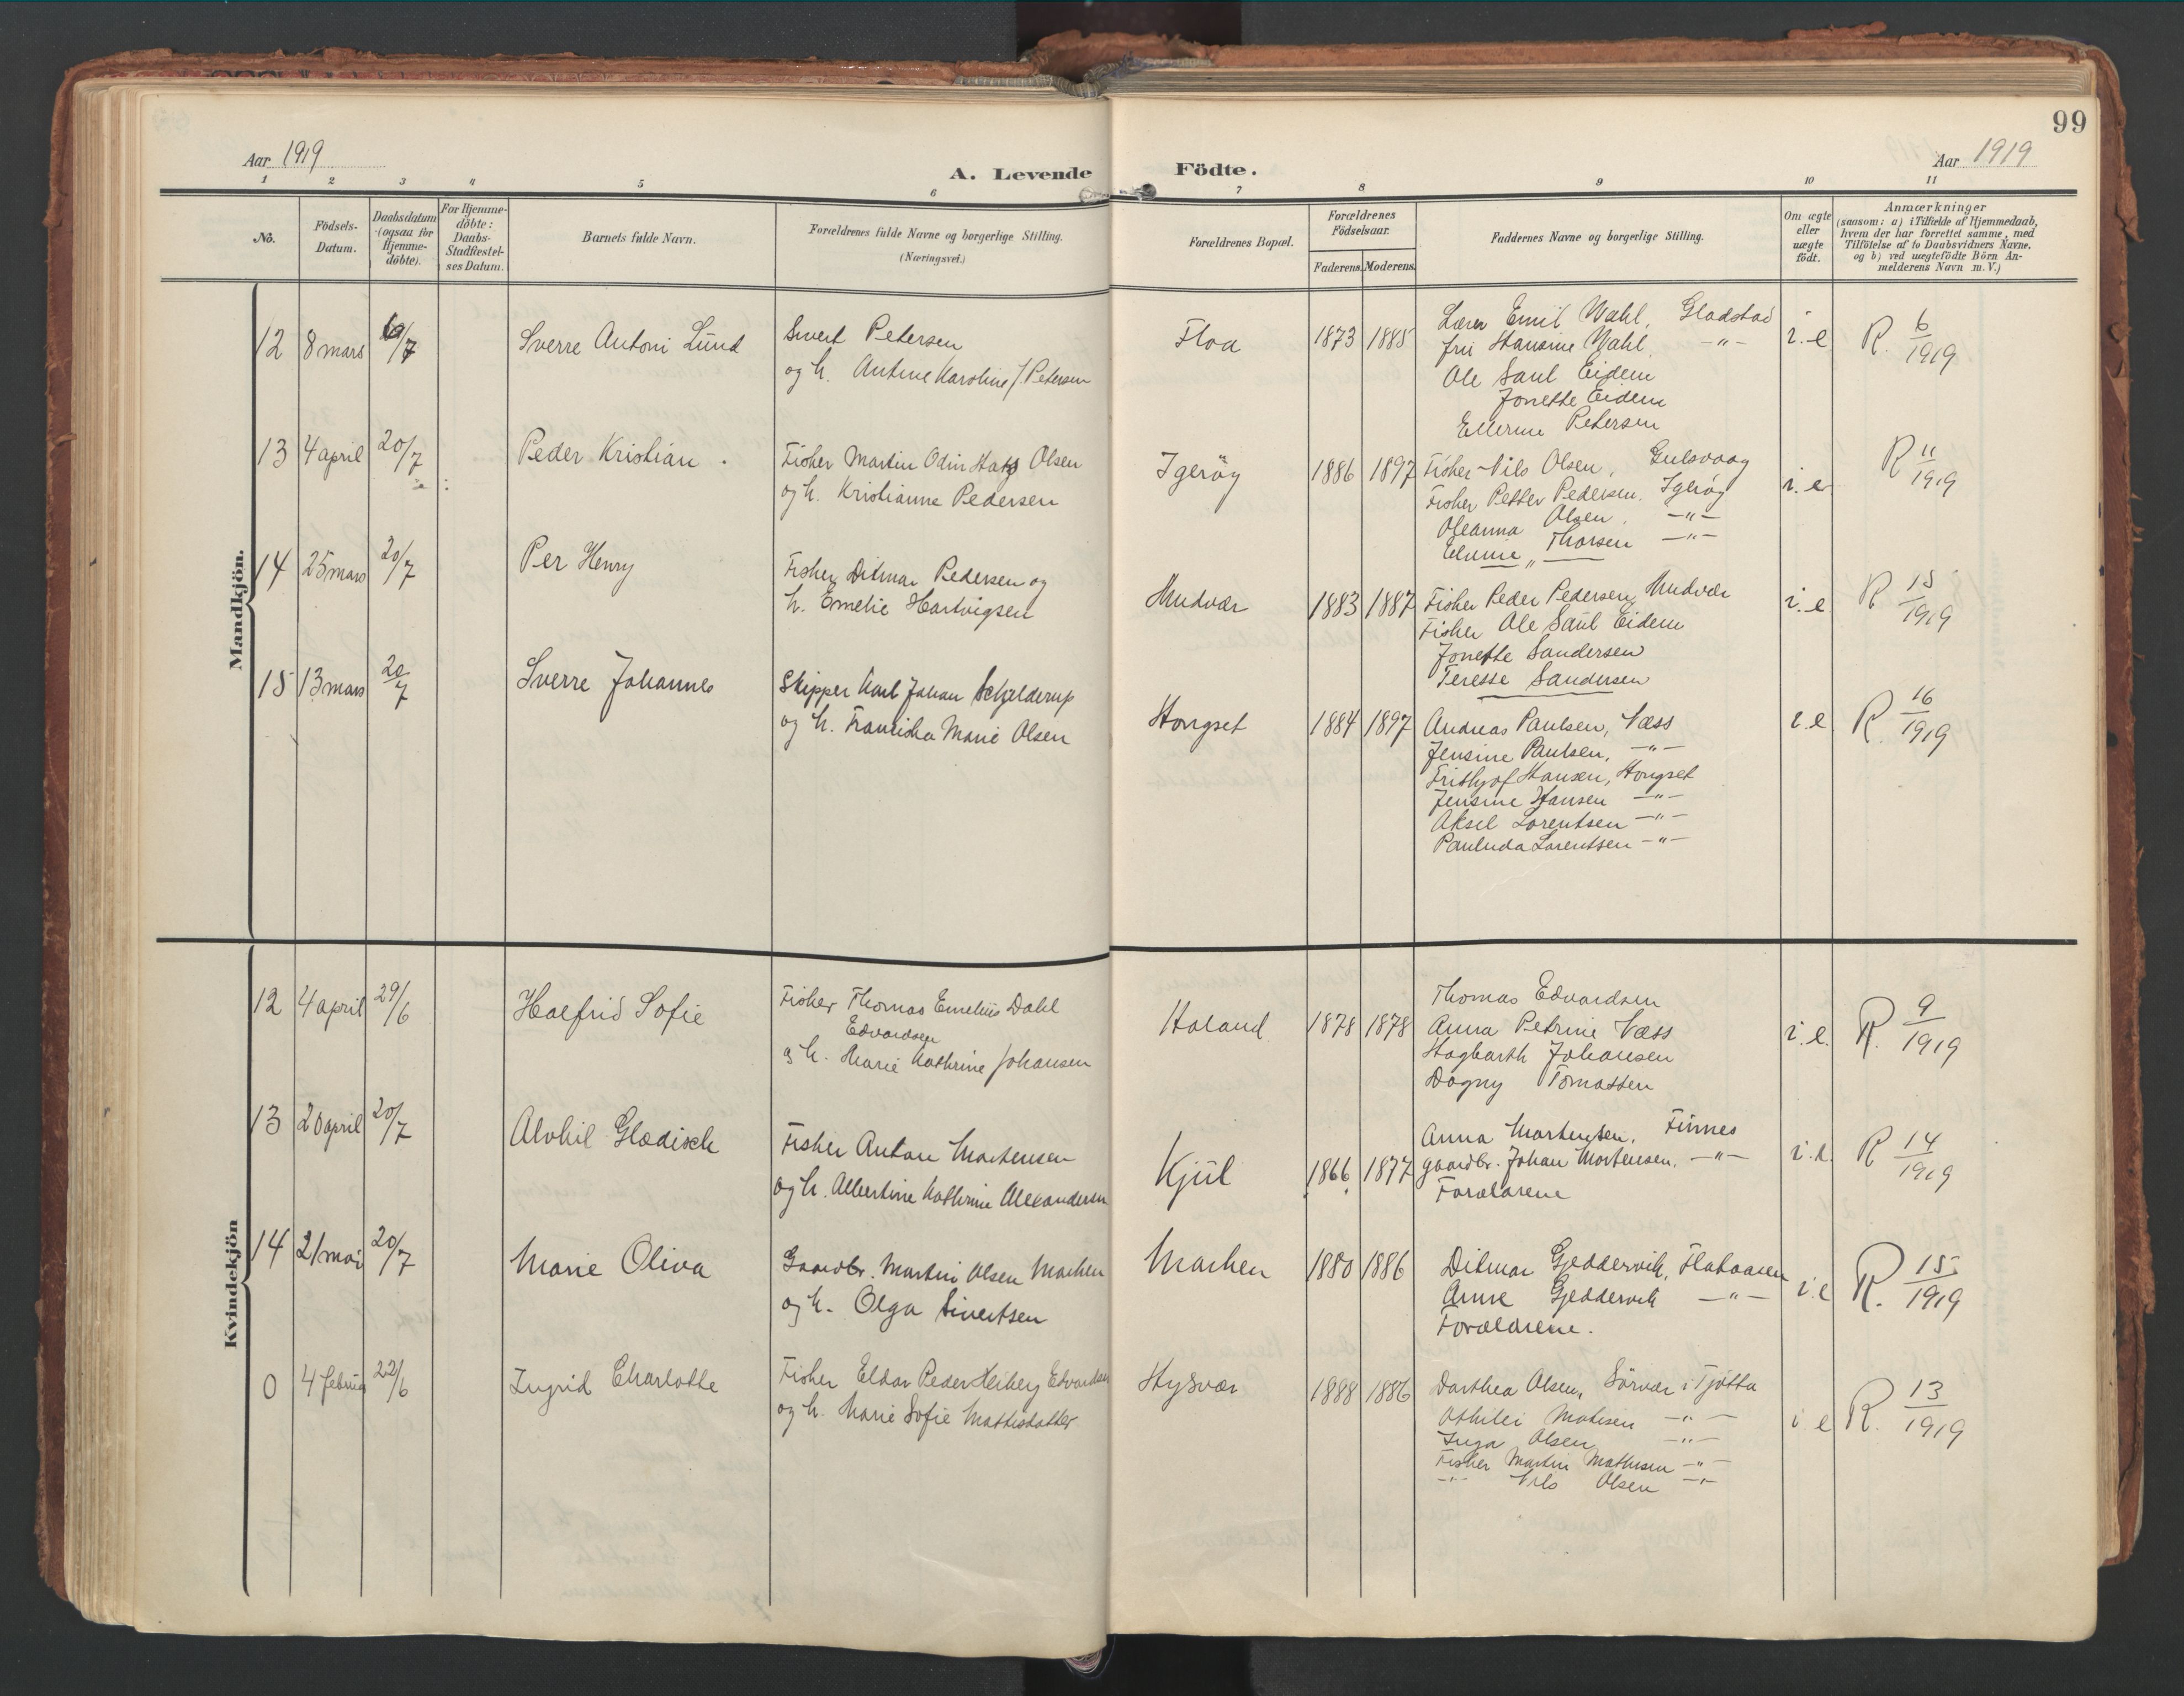 99
Aar 1919
A. Levende Födte.
Aar 1919
1 2 3 4 5 6 7 8 9 10 11
No.
Födsels-Datum.
Daabsdatum (ogsaa for Hjemme-döbte).
For Hjemme-döbte: Daabs-Stadfæstel-ses Datum.
Barnets fulde Navn.
Forældrenes fulde Navne og borgerlige Stilling.
(Næringsvei.)
Forældrenes Bopæl.
Forældrenes Födselsaar.
Faderens. Moderens.
Faddernes Navne og borgerlige Stilling.
Om ægte eller uægte födt.
Anmærkninger
(saasom: a) i Tilfælde af Hjemmedaab,
hvem der har forrettet samme, med
Tilföielse af to Daabsvidners Navne.
og b) ved uægtefödte Börn An-
melderens Navn m. V.)
Mandkjön.
12 8 mars 19/7 Sverre Antoni Lund
Sivert Petersen
og h. Antine Karoline J. Petersen
Floa 1873 1885
Lærer Emil Wahl, Gladstad
fru Hansine Wahl, -"-
Ole Saul Eidem
Jonette Eidem
Ellerine Petersen
i. e. R. 6/1919
13 4 april 20/7 Peder Kristian.
Fisher Martin Odin Olsen
og h. Kristianne Pedersen
Igeröy 1886 1897
Fisher Nils Olsen, Gulsvaag
Fisher Petter Pedersen, Igeröy
Oleanna Olsen, -"-
Thorsen -"-
i. e R 11/1919
14 25 mars 20/7 Per Henry
Fisher Ditmar Pedersen og
h. Emelie Hartvigsen
Mudvær 1883 1887
Fisher Peder Pedersen, Mudvær
Fisher Ole Saul Eidem
Jonette Sandersen
Terese Sandersen
i. e R 15/1919
15 13 mars 20/7 Sverre Johannes
Skipper Karl Johan Schjelderup
og h. Franciska Marie Olsen
Hongset 1884 1897
Andreas Paulsen, Næss
Jensine Paulsen, -"-
Frithjof Hansen, Hongset
Jensine Hansen -"-
Aksel Lorentsen -"-
Pauluda Lorentsen -"-
i. e R. 16/1919
Kvindekjön
12 4 april 29/6 Halfrid Sofie
Fisher Thomas Emelius Dahl
Edvardsen
og h. Marie Kathrine Johansen
Haland 1878 1878
Thomas Edvardsen
Anna Petrine Næss
Hagbarth Johansen
Dagny Tomassen
i. e. R. 9/1919
13 20 april 20/7 Alvhil Gladisch
Fisher Anton Mortensen
og h. Albertine Kathrine Alexandersen
Kjül 1866 1877
Anna Mortensen, Finnes
gaardbr. Johan Mortensen, -"-
Forældrene
i. e. R 14/1919
14 21 mai 20/7 Marie Oliva
Gaardbr. Martin Olsen Marken
og h. Olga Sivertsen
Marken 1880 1886
Ditmar Gjeddervik,
Anne Gjeddervik -"-
Forældrene.
i. e R. 15/1919
0 4 februar 22/6 Ingrid Charlotte
Fisher Eldar Peder Heiberg Edvardsen
og h. Marie Sofie Mathisdatter
Hysvær 1888 1886
Dorthea Olsen, Sörvær i Tjötta
Othilei Matisen -"-
Inga Olsen -"-
Fisher Martin Mathisen -"-
-"- Nils Olsen -"-
i e R. 13/1919